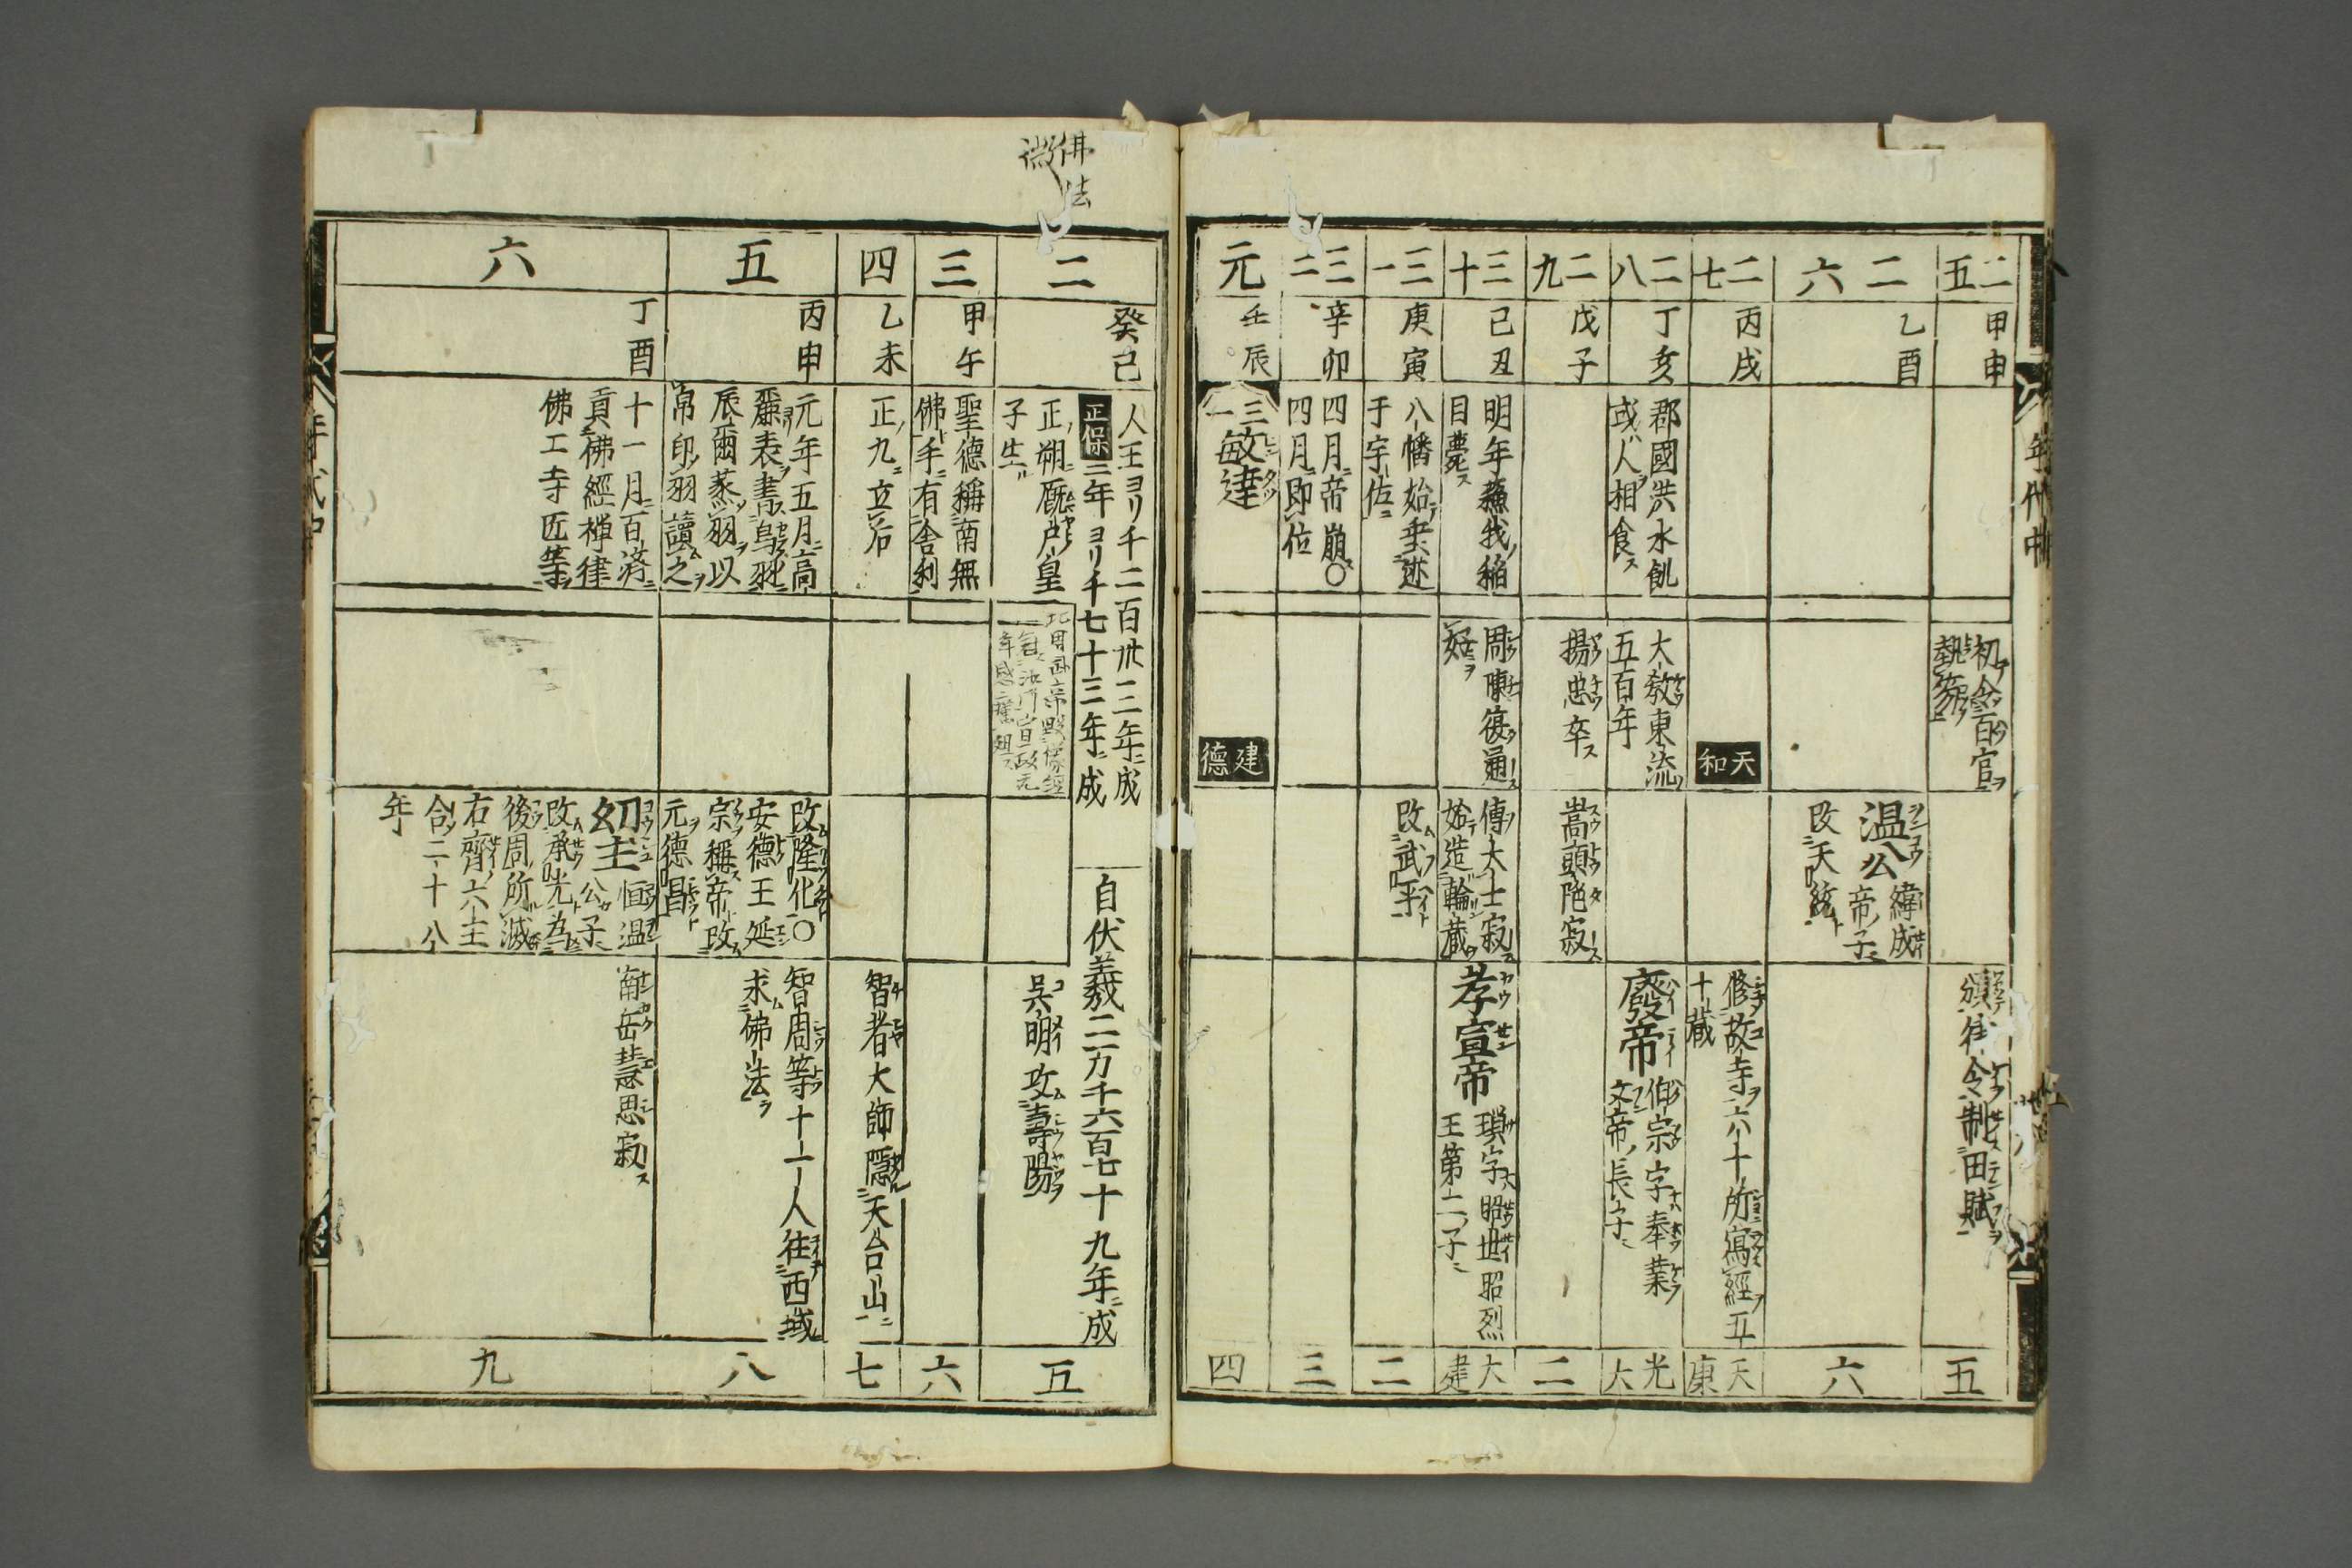 二五
甲申
初令百官
執笏
頒律令制田賦
五
二六
乙酉
温公
緯成
帝子
改天統
六
二七
丙戌
天和
修故寺六十所寫經五
十藏
天
康
二八
丁亥
郡國洪水飢
或人相食
大教東流
五百年
廢帝
伯宗字奉業
文帝長子
光
大
二九
戊子
揚忠卒
嵩頭陁寂
二
三十
己丑
明年蘓我稲
目薨ス
周陳復通
好ヲ
傳大士寂
始造輪藏
孝宣帝
頊字昭世昭烈
王第二子
大
建
三一
庚寅
八幡始垂迹
于宇佐
改武平
二
三二
辛卯
四月帝崩〇
四月即位
三
元
壬辰
三一敏達
建德
四
佛法
微
二
癸已
人王ヨリ千二百卅二年ニ成
正保三年ヨリ千七十三年ニ成
自伏羲二万千六百七十九年ニ成
正朔厩戸皇
子生
呉明攻壽陽
五
三
甲午
聖德稱南無
佛手有舎利
六
四
乙未
正九立石
智者大師隱天台山
七
五
丙申
元年五月高
麗表書烏羽
辰爾蒸羽以
帛印羽讀之
改隆化〇
安德王延
宗稱帝改
元德昌
智周等十一人往西域
求佛法
八
六
丁酉
十一月百済
貢佛經禅律
佛工寺匠等
幼主
恒温
公子
改承光為
後周所滅
右齊六主
合二十八
年
南岳慧思寂
九
年代中